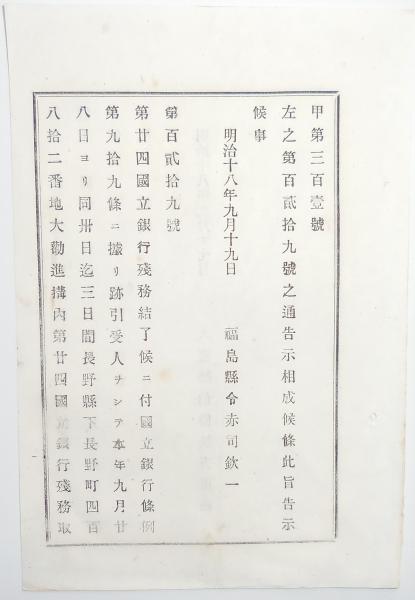 甲第三百壹號
左之第百貳拾九號之通告示相成候條此旨告示
候事
明治十八年九月十九日　福島縣令赤司欽一
第百貳拾九號
第廿四國立銀行殘務結了候ニ付國立銀行條例
第九拾九條ニ據リ跡引受人チシテ本年九月廿
八日ヨリ同卅日迄三日間長野縣下長野町四百
八拾二番地大勸進搆内第廿四國立銀行殘務取